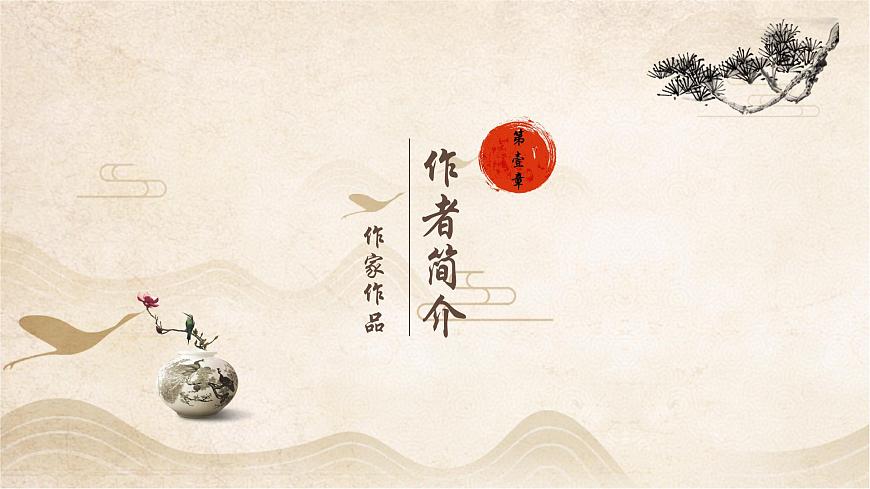 第壹章
作者简介
作家作品